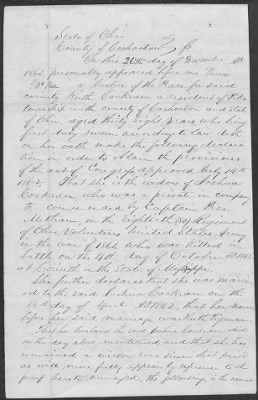 State of Ohio
County of Coshocton ss
On this 26th day of November AD
1862 personally appeared before me
a Justice of the Peace for said
county Ruth Cochran a resident of
township in the county of Coshocton and state
of Ohio, aged thirty Eight years who being
first duly sworn according to law doth
on her oath make the following declara
tion in order to obtain the provisions
of the act of Congress approved July 14th
1862. That she is the widow of Joshua
Cochran who was a private in company
F commanded by Captain P.
Metham, in the Eightieth (80) Regiment
of Ohio Volunteers United States Army
in the war of 1861 who was killed in
battle on the 4th day of October AD 1862
at Corinth in the State of
She further declares that she was marri
ed to the said Joshua Cochran on the
day of April AD 1842, that her name
before her said marriage was Ruth
That her husband the said Joshua Cochran died
on the day above mentioned and that she has
remained a widow ever since that period
as will more fully appear by reference to the
proof hereto annexed, the following is the names